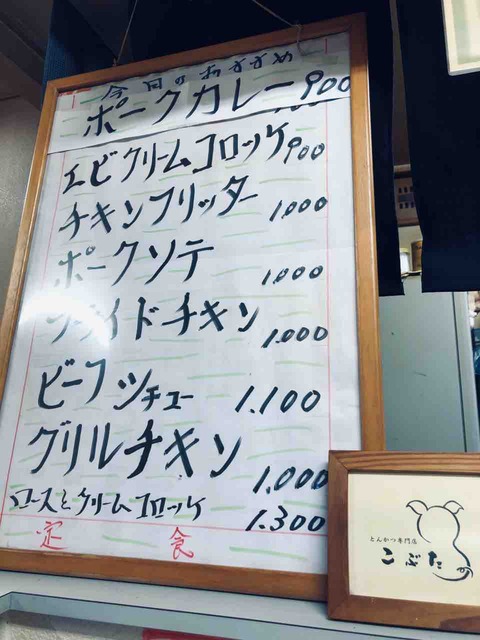 今日のおすすめ
ポークカレー 900
エビクリームコロッケ 900
チキンフリッター 1.000
ポークソテ 1.000
フライドチキン 1.000
ビーフシチュー 1.100
グリルチキン 1.000
ロースとクリームコロッケ 1.300
定食
とんかつ専門店
こぶた